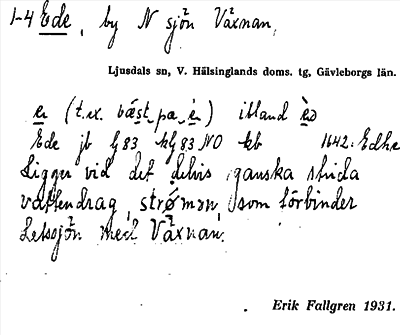 1-4 Ede, by N sjön Växnan,
Ljusdals sn, V. Hälsinglands doms. tg, Gävleborgs län.
e (t.ex. væst pa è) ibland èd
Ede jb G83 kG83 NO kb 1642: Edhe
Ligger vid det delvis ganska strida
vattendrag, strømən, som förbinder
Letssjön med Växnan.
Erik Fallgren 1931.